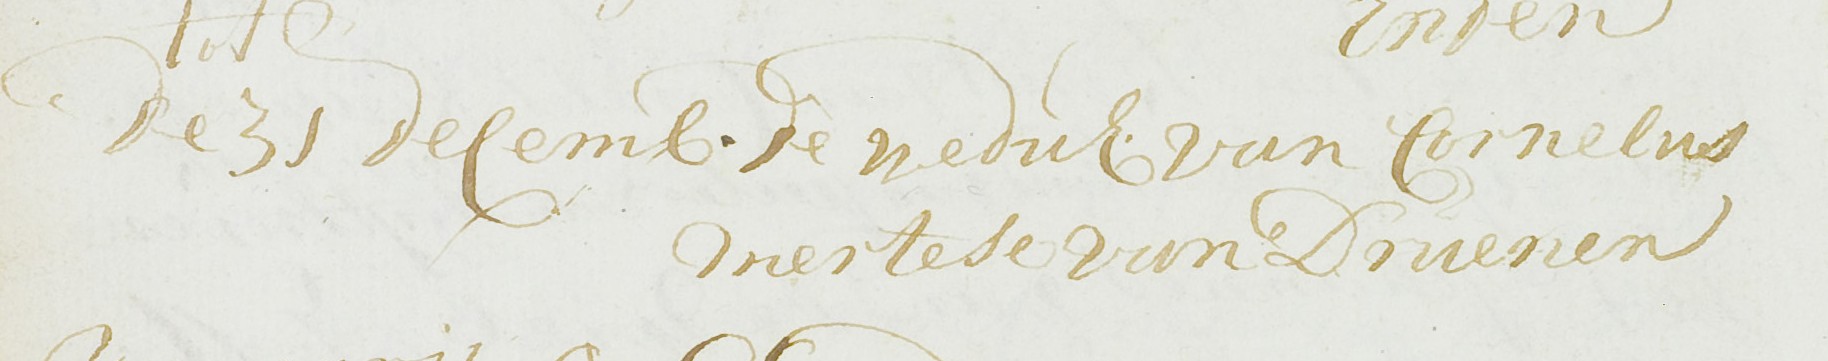 De 31 decemb. de weduE. van Cornelus
mertese van Druenen